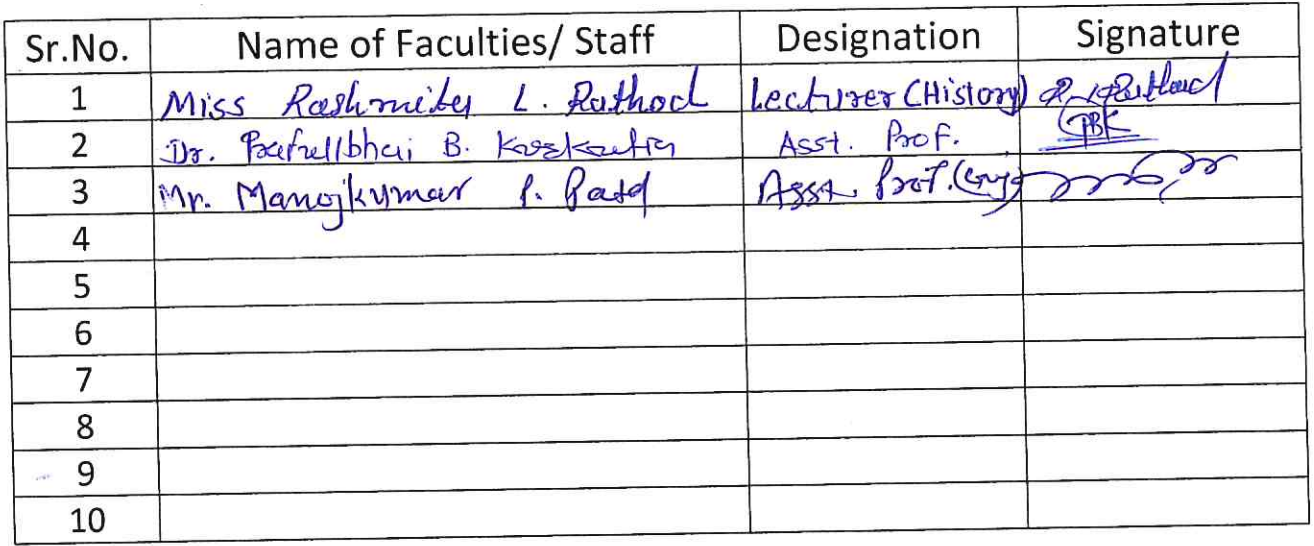 Sr.No. Name of Faculties/ Staff Designation Signature
1 Miss Rashmita L. Rathod Lecturer (History) R. L. Rathod
2 Dr. Prafullbhai B. Asst. Prof. PBK
3 Mr. Manojkumar P. Patel Asst. Prof. (Eng)
4
5
6
7
8
9
10